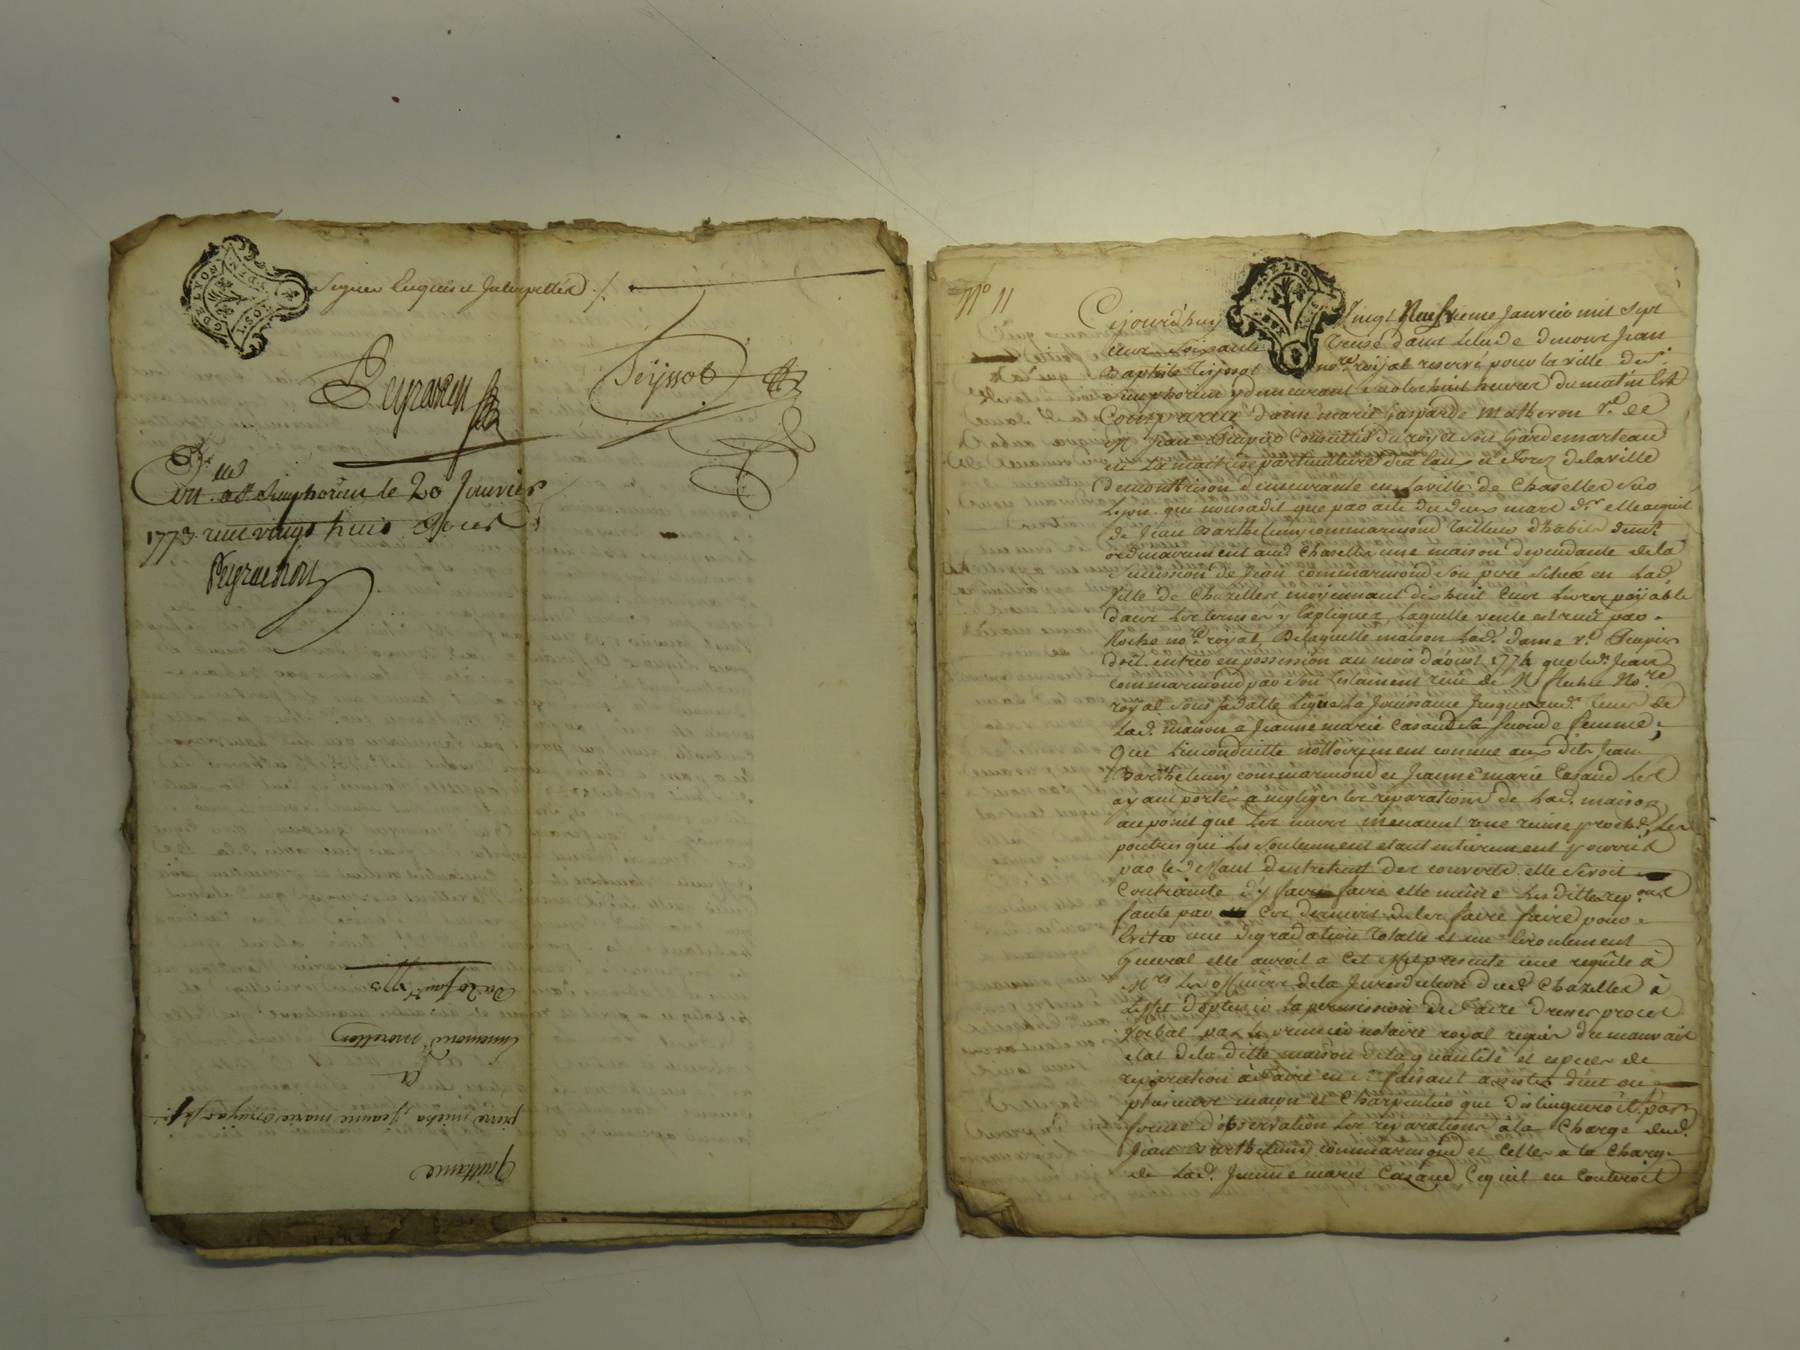 G DE LYON
signer Enquis et Interpellés ./.
Peyrachon
Teyssot
Con. a St. Simphorien le 20 Janvier
1773 reçu vingt huit sols
Peyrachon
Quittance
pierre Jeanne marie
et
moretton
Du 20 Janvr. 1773
No 11
G DE LYON
Cejourd'huy Vingt Neufvieme Janvier mil sept
cent soixante treise dans l'étude de nous Jean
Baptiste Teyssot nore. royal reservé pour la ville de St.
simphorien y demeurant sur les huit heures du matin Est
Comparüe dame marie gasparde Matheron Ve. de
Mr. Jean Conseiller du roy et son garde marteau
en La maitrise particuliere des Eaux et forez de la ville
de montbrison demeurante en la ville de Chazelles sur
Lyon. que nous a dit que par acte du deux mars dr. elle acquit
de Jean Barthelemy commarmond tailleur d'habits demt.
ordinairement aud. Chazelles une maison dependante de la
sucession de Jean commarmond son pere située en Lad.
ville de Chazelles moyennant dix huit Cent Livres payable
dans Les termes y Expliquez, Laquelle vente est reçue par
Roche nore. royal De laquelle maison Lad. dame ve.
doit entrer en possession au mois d'aoust 1774 que led. Jean
commarmond par son testament reçu de Me. Nore.
royal sous sa datte Legue La Jouissance Jusqu'aud. tems de
Lad. maison a Jeanne marie Cazaud sa seconde femme;
Que L'inconduitte nottoirement connue aux dits Jean
Barthelemy commarmond et Jeanne marie Cazaud Les
ayant portés a negliger les reparations de Lad. maison
au point que Les murs menacent une ruine proche, Les
poutres que Les soutiennent etant entierement pourries
par le deffaut d'entretient des couverts. elle seroit
Contrainte d'y faire faire elle même Les dittes repons.
faute par Ces derniers de les faire faire pour
Eviter une degradation totalle et un Ecroulement
general elle auroit a Cet effet presenté une requête à
Mrs Les officiers de la Jurisdiction dud. Chazelles à
L'effet d'optenir la permission de faire dresser procès
verbal par Le premier notaire royal requis du mauvais
etat de la ditte maison de la quantité et espece de
reparation à faire en se faisant assister d'un ou
plusieurs maçon et Charpentier que distingueroit par
forme d'observation les reparations à la Charge dud.
Jean Barthelemy commarmond et Celles a la Charge
de Lad. Jeanne marie Cazaud, Ce qui en Couteroit